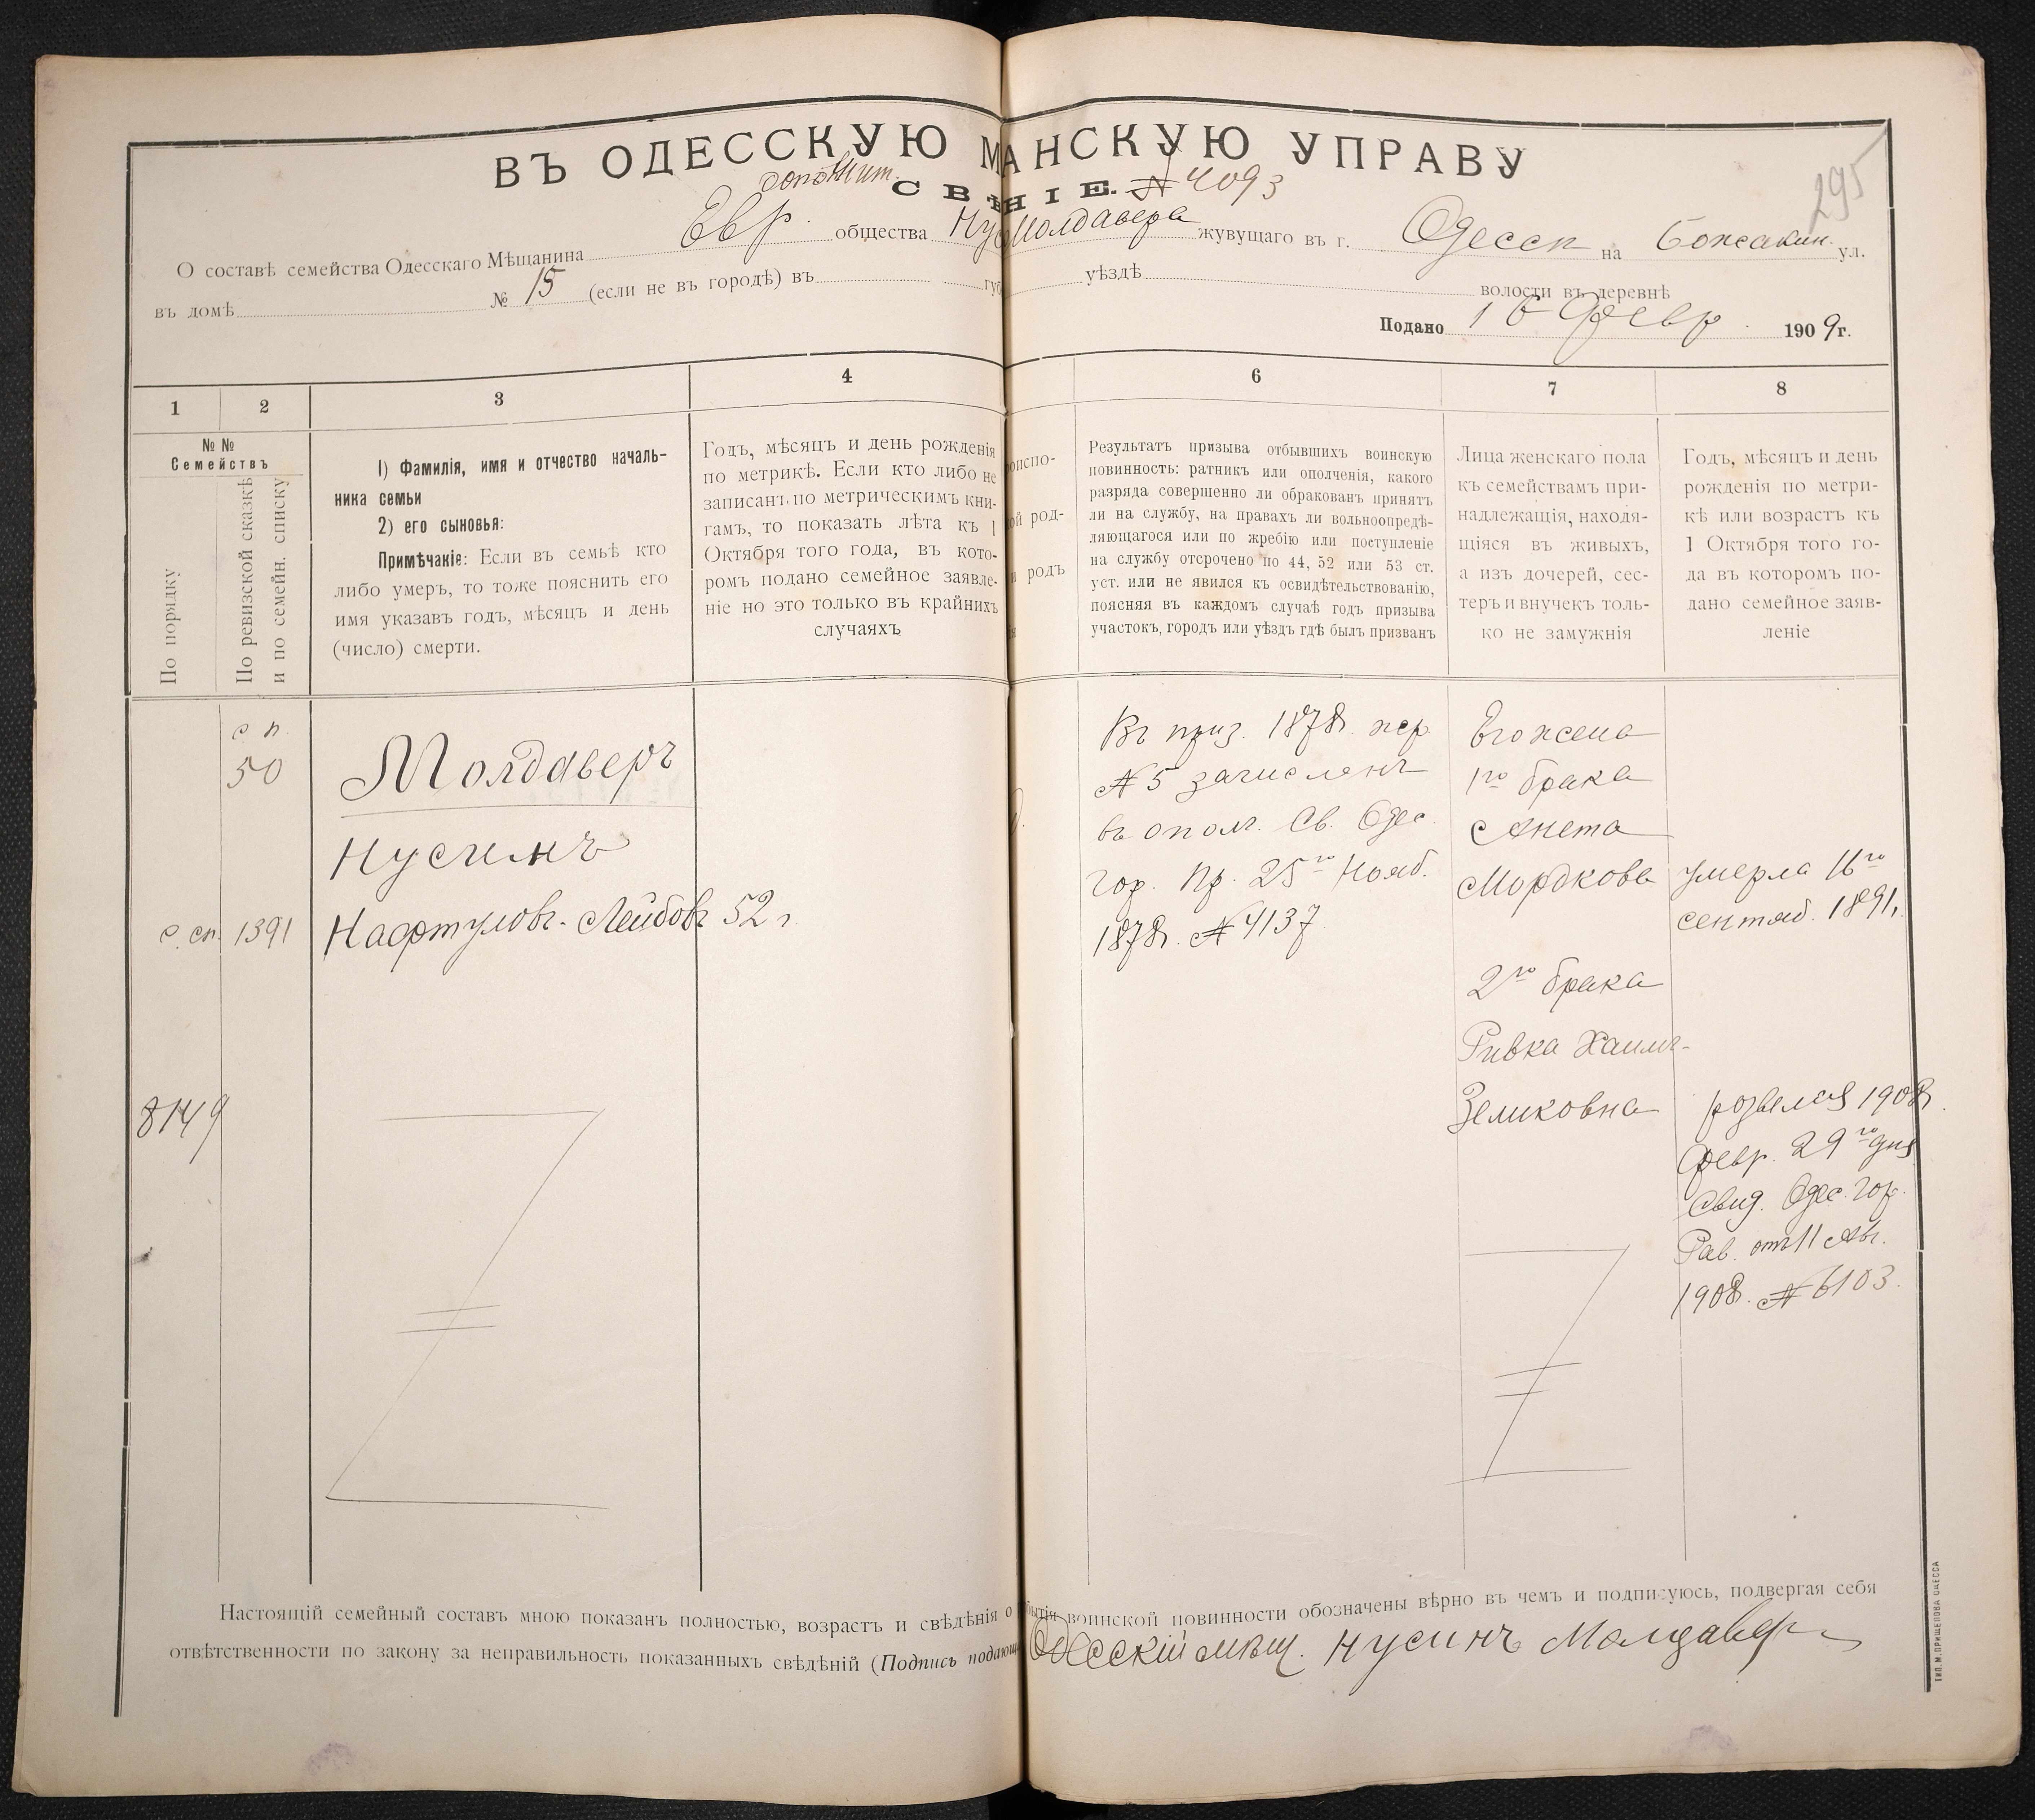 ВЪ ОДЕССКУЮ М АНСКУЮ УПРАВУ
295
дополнит. СВѢ НІЕ. № 4093
О составѣ семейства Одесскаго Мѣщанина Евр. общества Нус Молдавера жувущаго въ г. Одесси на Божакин. ул.
въ домѣ № 15 (если не въ городѣ) въ губ уѣздѣ волости въ деревнѣ
Подано 16 Февр. 1909 г.
1 2 3 4 6 7 8
№№
Семействъ
По порядку
По ревизской сказкѣ
и по семейн. списку
1) Фамилія, имя и отчество началь-
ника семьи
2) его сыновья:
Примѣчакіе: Если въ семьѣ кто
либо умеръ, то тоже пояснить его
имя указавъ годъ, мѣсяцъ и день
(число) смерти.
Годъ, мѣсяцъ и день рожденія
по метрикѣ. Если кто либо не
записанъ по метрическимъ кни-
гамъ, то показать лѣта къ 1
Октября того года, въ кото-
ромъ подано семейное заявле-
ніе но это только въ крайнихъ
случаяхъ
оиспо-
ой род-
и родъ
Результатъ призыва отбывшихъ воинскую
повинность: ратникъ или ополченія, какого
разряда совершенно ли обракованъ принятъ
ли на службу, на правахъ ли вольноопредѣ-
ляющагося или по жребію или поступленіе
на службу отсрочено по 44, 52 или 53 ст.
уст. или не явился къ освидѣтельствованію,
поясняя въ каждомъ случаѣ годъ призыва
участокъ, городъ или уѣздъ гдѣ былъ призванъ
Лица женскаго пола
къ семействамъ при-
надлежащія, находя-
щіяся въ живыхъ,
а изъ дочерей, сес-
теръ и внучекъ толь-
ко не замужнія
Годъ, мѣсяцъ и день
рожденія по метри-
кѣ или возрастъ къ
1 Октября того го-
да въ которомъ по-
дано семейное заяв-
леніе
с п.
50
с. сп. 1391
8149
Молдаверъ
Нусинъ
Нафтуловъ-Лейбовъ 52 г.
Въ приз. 1878. жер.
№ 5 зачисленъ
въ опол. Св. Одес.
гор. Пр. 25го Нояб.
1878. № 4137
Его жена
1го брака
Анета
Мордкова
умерла 16го
сентяб. 1891.
2го брака
Ривка Хаимъ-
Зеликовна
розвелся 1908.
февр. 29го дня
Свид. Одес. гор.
Рав. отъ 11 Авг.
1908. № 6103.
Настоящій семейный составъ мною показанъ полностью, возрастъ и свѣдѣнія о бытія воинской повинности обозначены вѣрно въ чемъ и подписуюсь, подвергая себя
отвѣтственности по закону за неправильность показанныхъ свѣдѣній (Подпись подающ Одесскій мѣщ. Нусинъ Молдаверъ
ТИП. М. ПРИЩЕПОВА ОДЕССА